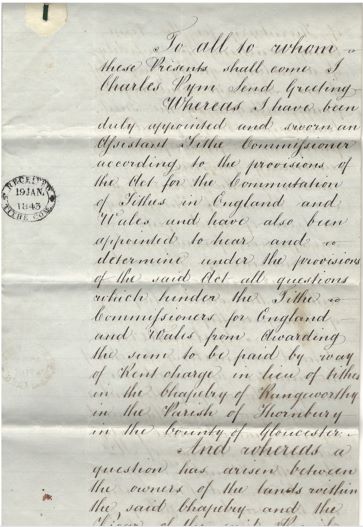 To all to whom
these Presents shall come I
Charles Pym Send Greeting
Whereas I have been
duly appointed and sworn an
Assistant Tithe Commissioner
according to the provisions of
the Act for the Commutation
of Tithes in England and
Wales and have also been
appointed to hear and
determine under the provisions
of the said Act all questions
which hinder the Tithe
Commissioners for England
and Wales from Awarding
the sum to be paid by way
of Rent charge in lieu of tithes
in the Chapelry of Rangeworthy
in the Parish of Thornbury
in the County of Gloucester.
And whereas a
question has arisen between
the owners of the lands within
the said Chapelry and the
RECEIVED
19 JAN.
1843
TITHE COM.